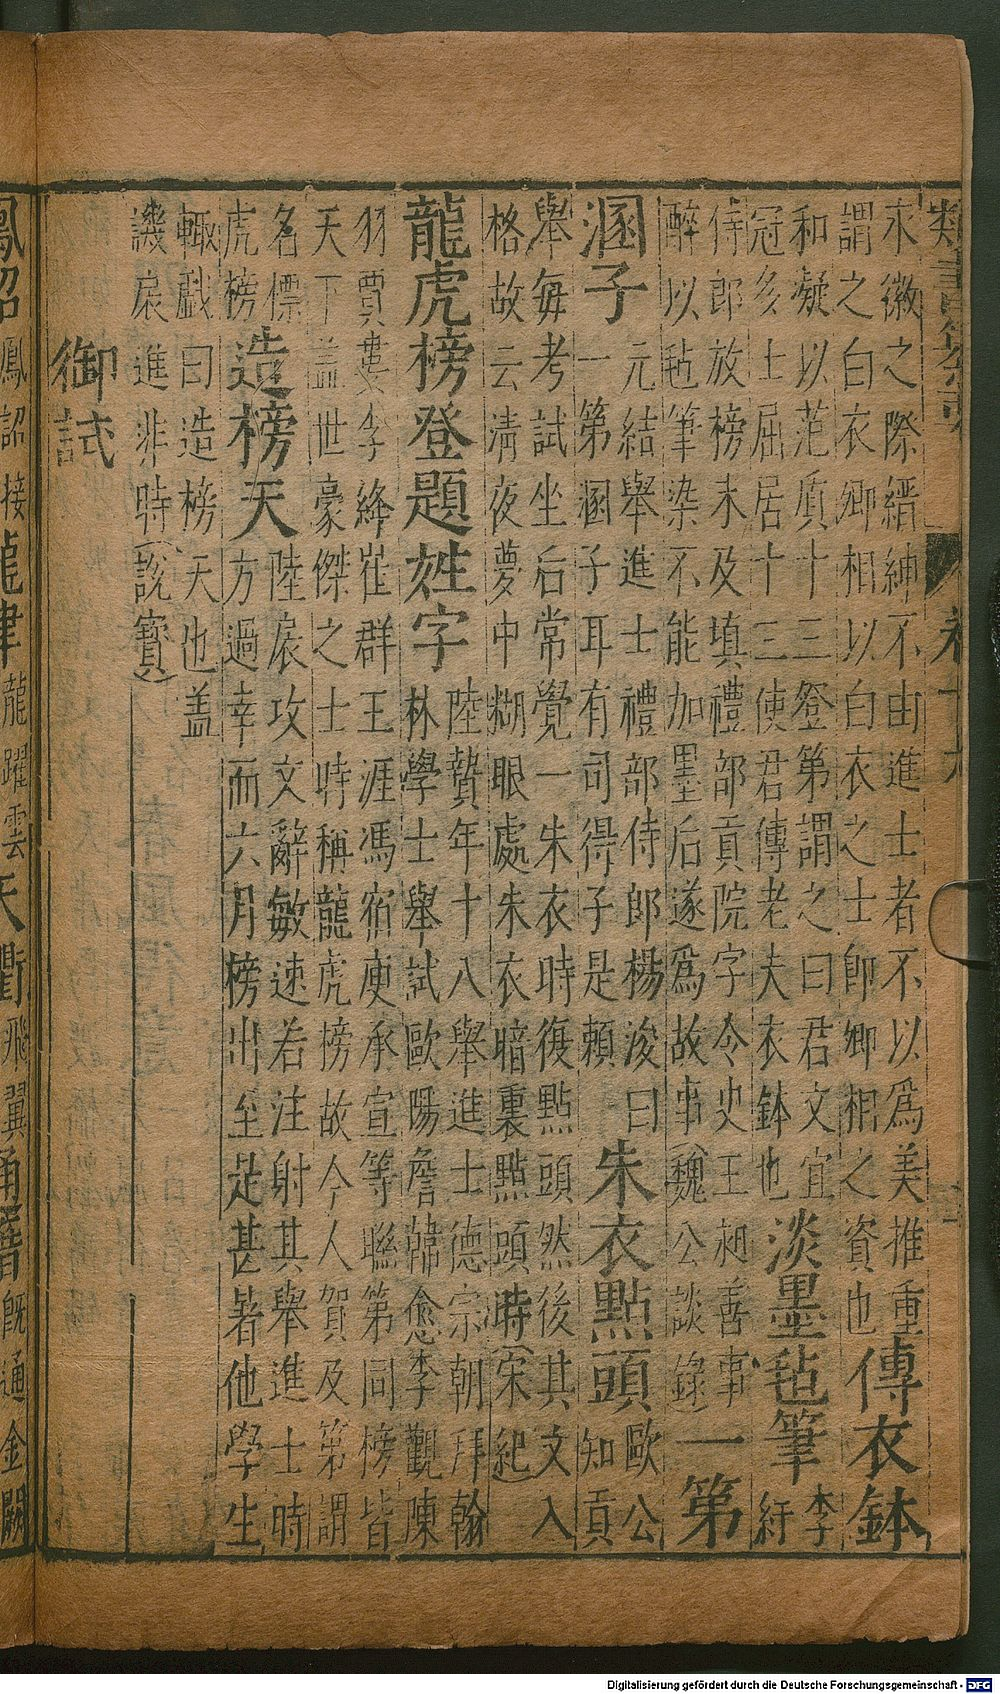 永徽之際縉紳不由進士者不以爲美推重
謂之白衣卿相以白衣之士卽卿相之資也
傳衣鉢
和凝以范質十三登第謂之曰君文宜
冠多士屈居十三使君傳老夫衣鉢也
淡墨毡筆
李
紆
侍郎放榜未及填禮部貢院字令史王昶善事
醉以毡筆染不能加墨后遂爲故事(魏公談錄)
一第
溷子
元結舉進士禮部侍郎楊浚曰
一第溷子耳有司得子是賴
朱衣點頭
歐公
知貢
舉每考試坐后常覺一朱衣時復點頭然後其文入
格故云清夜夢中糊眼處朱衣暗裏點頭時(宋紀)
龍虎榜登題姓字
陸贄年十八舉進士德宗朝拜翰
林學士舉試歐陽詹韓愈李觀陳
羽賈婁李絳崔群王涯馮宿庾承宣等聯第同榜皆
天下盖世豪傑之士時稱龍虎榜故今人賀及第謂
名標
虎榜
造榜天
陸扆攻文辭敏速若注射其舉進士時
方過幸而六月榜出至是甚暑他學生
輙戯曰造榜天也盖
譏扆進非時(說寶)
御試
鳳詔
鳳詔接
龍津
龍躍雲
天衢
飛翼
旣通金闕
Digitalisierung gefördert durch die Deutsche Forschungsgemeinschaft - DFG